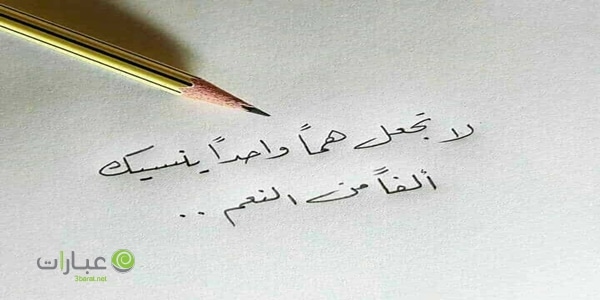 لا تجعل هماً واحداً ينسيك
ألفاً من النعم ..
عبارات
3barat.net